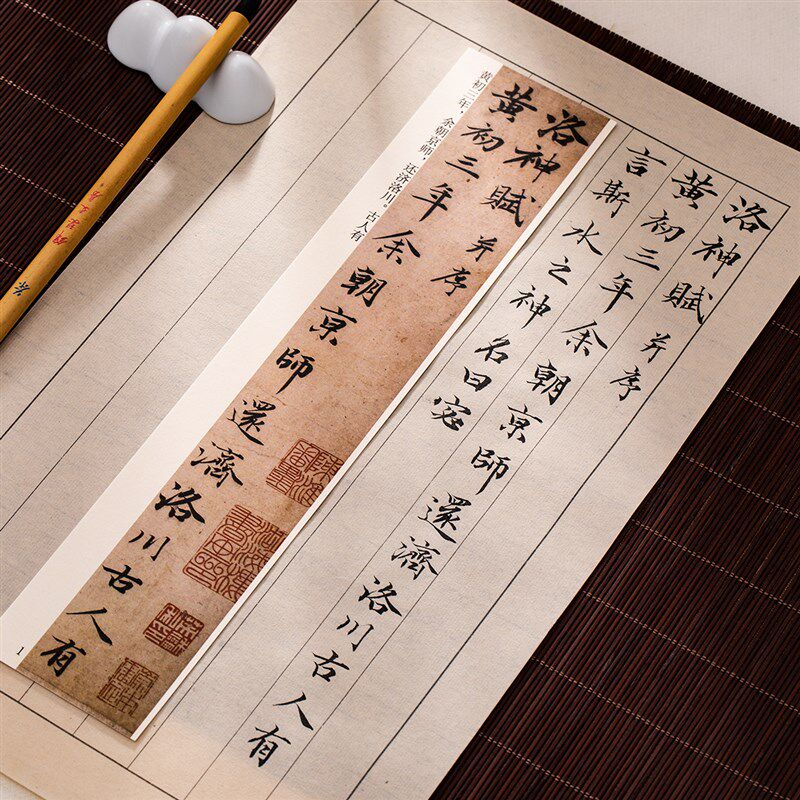 洛神賦 并序
黄初三年余朝京師還濟洛川古人有
言斯水之神名曰宓
洛神賦 并序
黄初三年余朝京師還濟洛川古人有
黄初三年，余朝京师，还济洛川。古人有
1